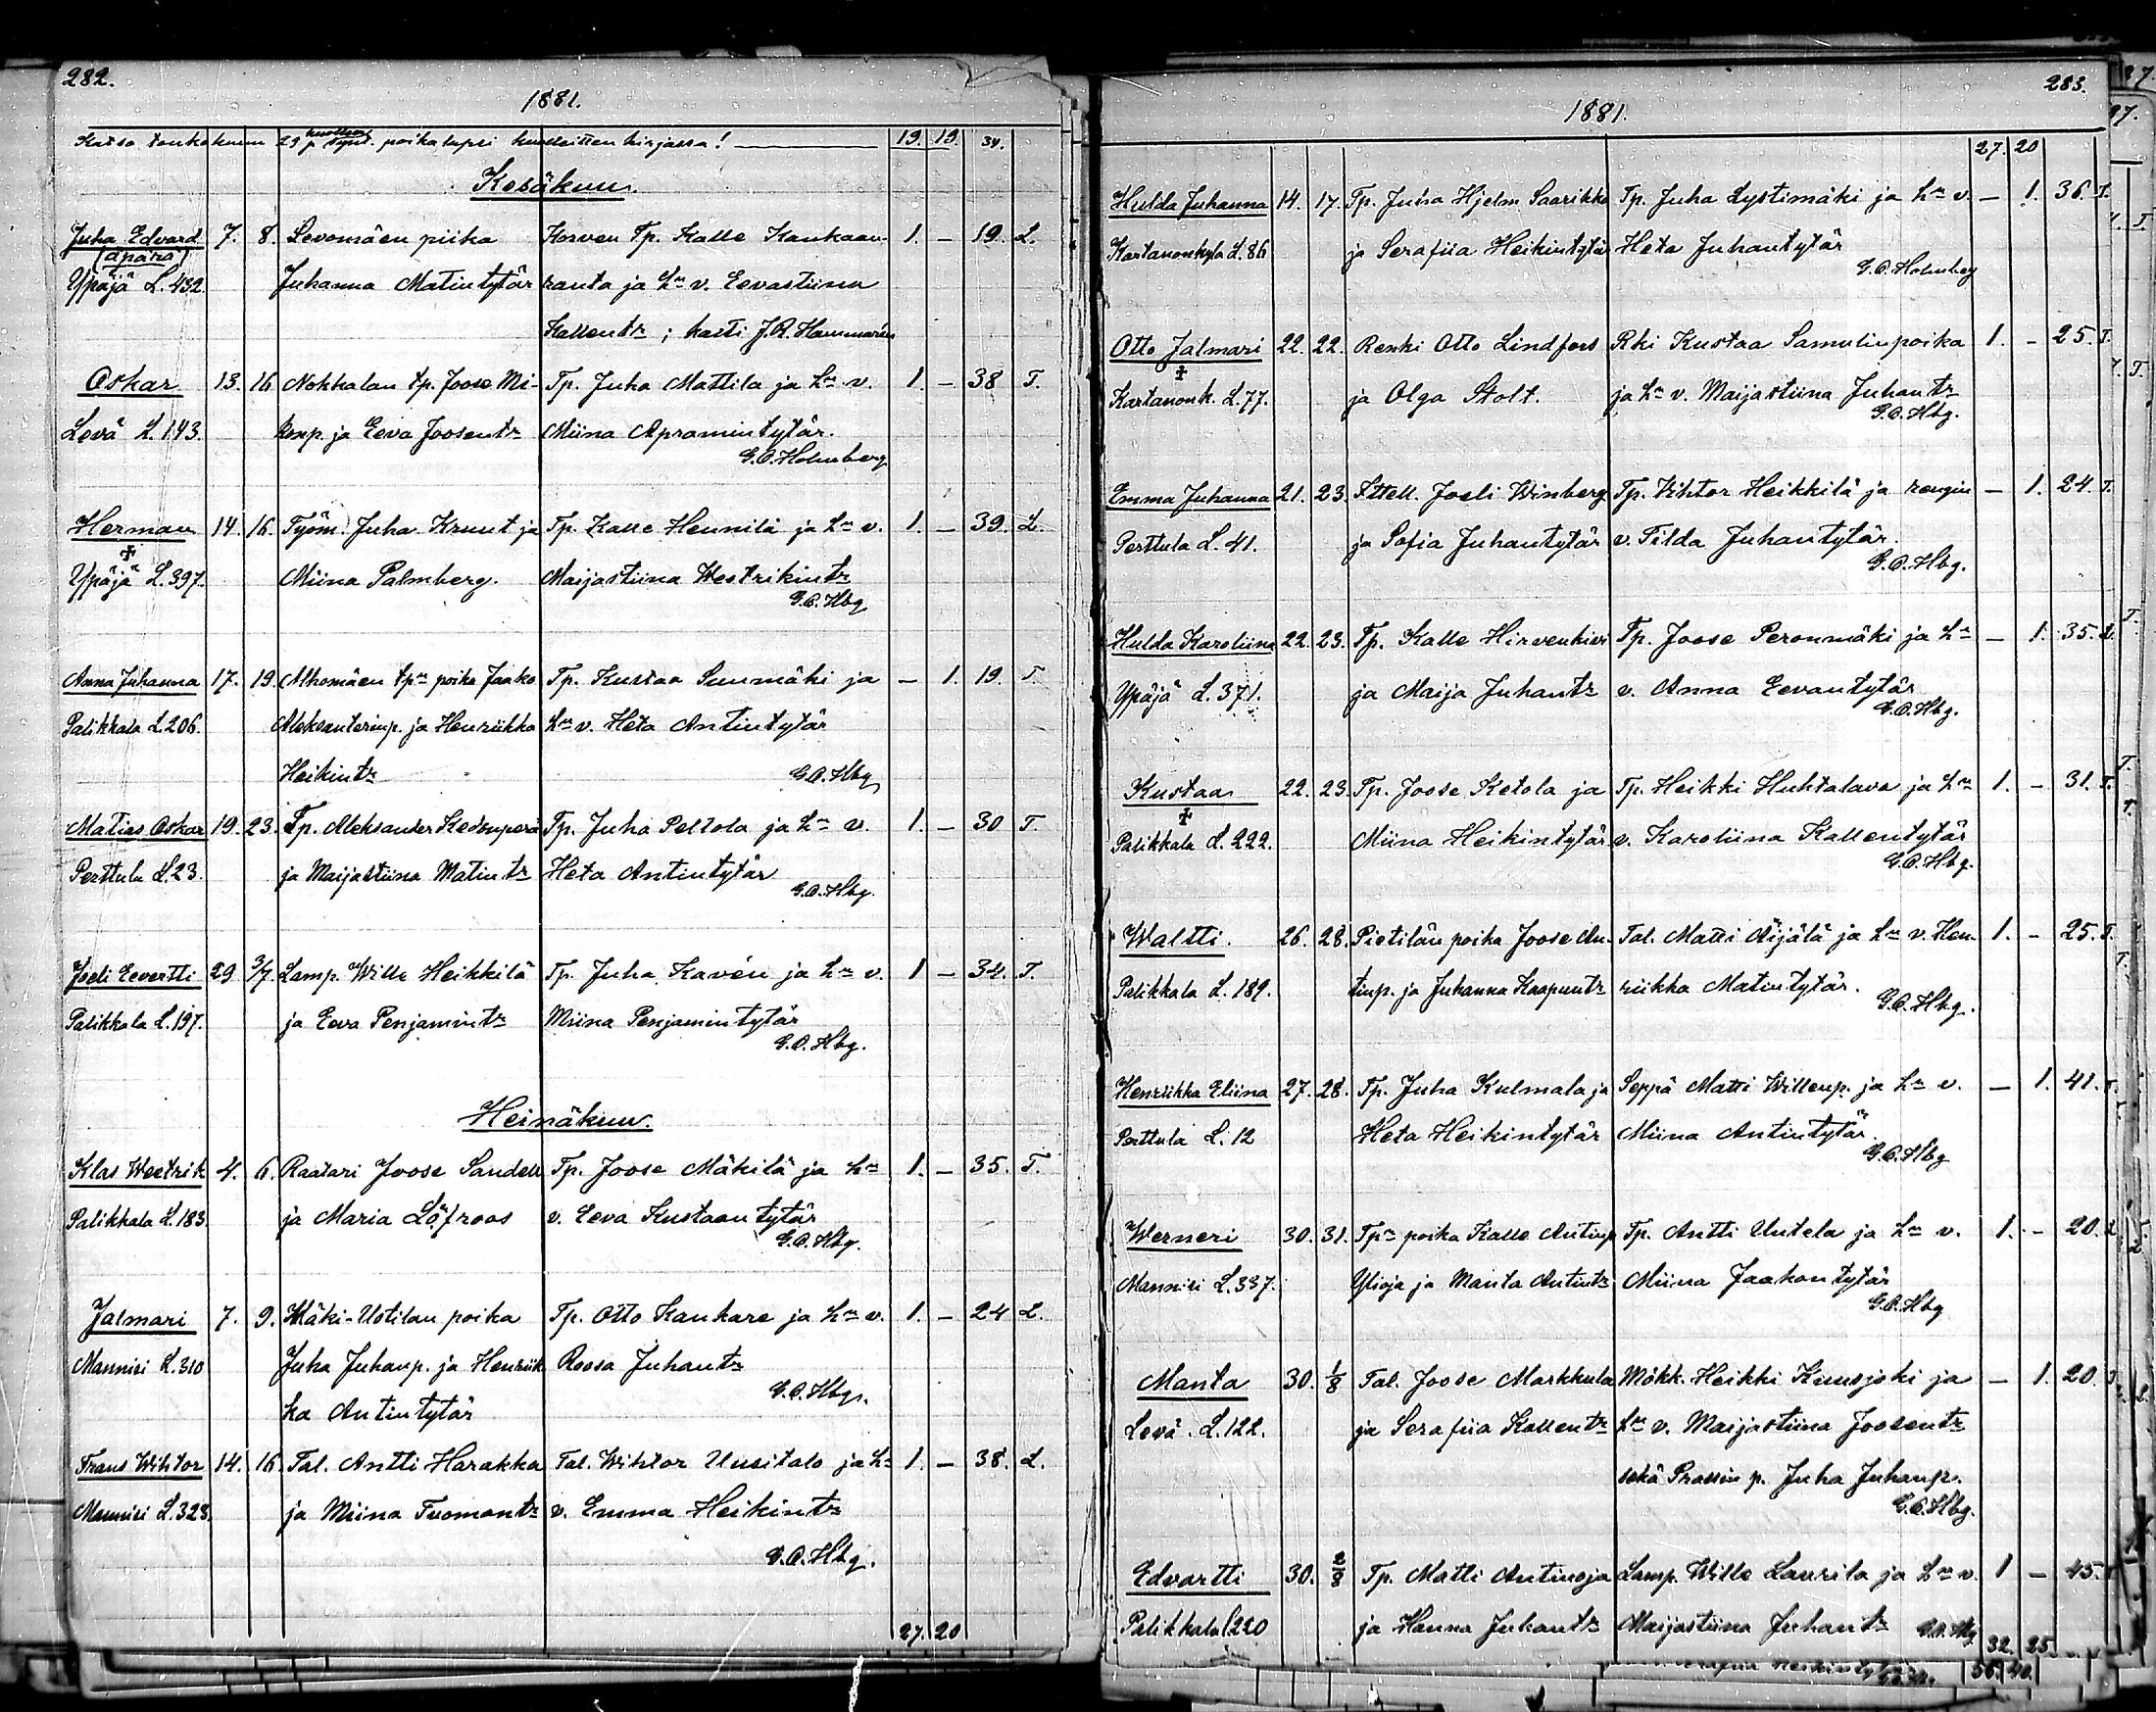 282.
1881.
Katso toukokuun 29 p. kuolleena synt. poikalapsi kuolleitten kirjassa! 19. 19. 34.
Kesäkuu.
Juha Edvard 7. 8. Levomäen piika Korven Tp. Kalle Kankaan- 1. – 19. L.
(äpärä)
Ypäjä L. 432. Juhanna Matintytär ranta ja hn v. Eevastiina
Kallentr; kasti J.R. Hammarén
Oskar 13. 16 Nokkalan tp. Joose Mi- Tp. Juha Mattila ja hn v. 1. – 38 T.
Levä L. 143. konp. ja Eeva Joosentr Miina Apramintytär.
G.O. Holmberg
Herman 14. 16. Työm. Juha Kruut ja Tp. Kalle Hennilä ja hn v. 1. – 39. L.
+
Ypäjä L. 397. Miina Palmberg. Maijastiina Westrikintr
G.O. Hbg
Anna Juhanna 17. 19. Alhomäen tpn poika Jaako Tp. Kustaa Suumäki ja – 1. 19. T.
Palikkala L. 206. Aleksanterinp. ja Henriikka hn v. Heta Antintytär
Heikintr G.O. Hbg
Matias Oskar 19. 23. Tp. Aleksander Kedonperä Tp. Juha Peltola ja hn v. 1. – 30 T.
Perttula L. 23. ja Maijastiina Matintr Heta Antintytär
G.O. Hbg.
Joeli Eevertti 29. 3/7. Lamp. Wille Heikkilä Tp. Juha Kavén ja hn v. 1 – 34. T.
Palikkala L. 197. ja Eeva Penjamintr Miina Penjamintytär
G.O. Hbg.
Heinäkuu.
Klas Westrik 4. 6. Raatari Joose Sandell Tp. Joose Mäkilä ja hn 1. – 35. T.
Palikkala L. 183 ja Maria Löfroos v. Eeva Kustaantytär
G.O. Hbg.
Jalmari 7. 9. Mäki-Ustilan poika Tp. Otto Kankare ja hn v. 1. – 24 L.
Mannisi L. 310 Juha Juhanp. ja Henriik- Roosa Juhantr
ka Antintytär G.O. Hbg.
Frans Wihtor 14. 16. Tal. Antti Harakka Tal. Wihtor Uusitalo ja hn 1. – 38. L.
Mannisi L. 323. ja Miina Tuomantr v. Emma Heikintr
G.O. Hbg.
27. 20
283.
1881.
27. 20
Hulda Juhanna 14. 17. Tp. Juha Hjelm Saarikko Tp. Juha Lystimäki ja hn v. – 1. 36. T.
Kartanonkylä L. 86 ja Serafiia Heikintytär Heta Juhantytär
G.O. Holmberg
Otto Jalmari 22. 22. Renki Otto Lindfors Rki Kustaa Samulinpoika 1. – 25. T.
+
Kartanonk. L. 77. ja Olga Stolt. ja hn v. Maijastiina Juhantr
G.O. Hbg.
Emma Juhanna 21. 23. Ittell. Joeli Winberg Tp. Vihtor Heikkilä ja rengin – 1. 24. T.
Perttula L. 41. ja Sofia Juhantytär v. Tilda Juhantytär.
G.O. Hbg.
Hulda Karoliina 22. 23. Tp. Kalle Hirvenkivi Tp. Joose Peronmäki ja hn – 1. 35. L.
Ypäjä L. 371. ja Maija Juhantr v. Anna Eevantytär
G.O. Hbg.
Kustaa 22. 23. Tp. Joose Ketola ja Tp. Heikki Huhtalava ja hn 1. – 31. T.
+
Palikkala L. 222. Miina Heikintytär v. Karoliina Kallentytär
G.O. Hbg.
Waltti. 26. 28. Pietilän poika Joose An- Tal. Matti Äijälä ja hn v. Hen- 1. – 25. T.
Palikkala L. 189. tinp. ja Juhanna Kaapuntr riikka Matintytär.
G.O. Hbg.
Henriikka Eliina 27. 28. Tp. Juha Kulmala ja Seppä Matti Willenp. ja hn v. – 1. 41. T.
Perttula L. 12 Heta Heikintytär Miina Antintytär.
G.O. Hbg
Werneri 30. 31. Tpn poika Kalle Antinp. Tp. Antti Uutela ja hn v. 1. – 20. L.
Mannisi L. 337. Ylioja ja Manta Antintr Miina Jaakontytär
G.O. Hbg
Manta 30. 1/8 Tal. Joose Markkula Mökk. Heikki Kuusjoki ja – 1. 20. T.
Levä. L. 122. ja Serafiia Kallentr hn v. Maijastiina Joosentr
sekä Prassin p. Juha Juhanp.
G.O. Hbg.
Edvartti 30. 2/8 Tp. Matti Antinoja Lamp. Wille Laurila ja hn v. 1 – 45. T.
Palikkala L 220 ja Hanna Juhantr Maijastiina Juhantr G.O. Hbg
32. 25
56. 40.